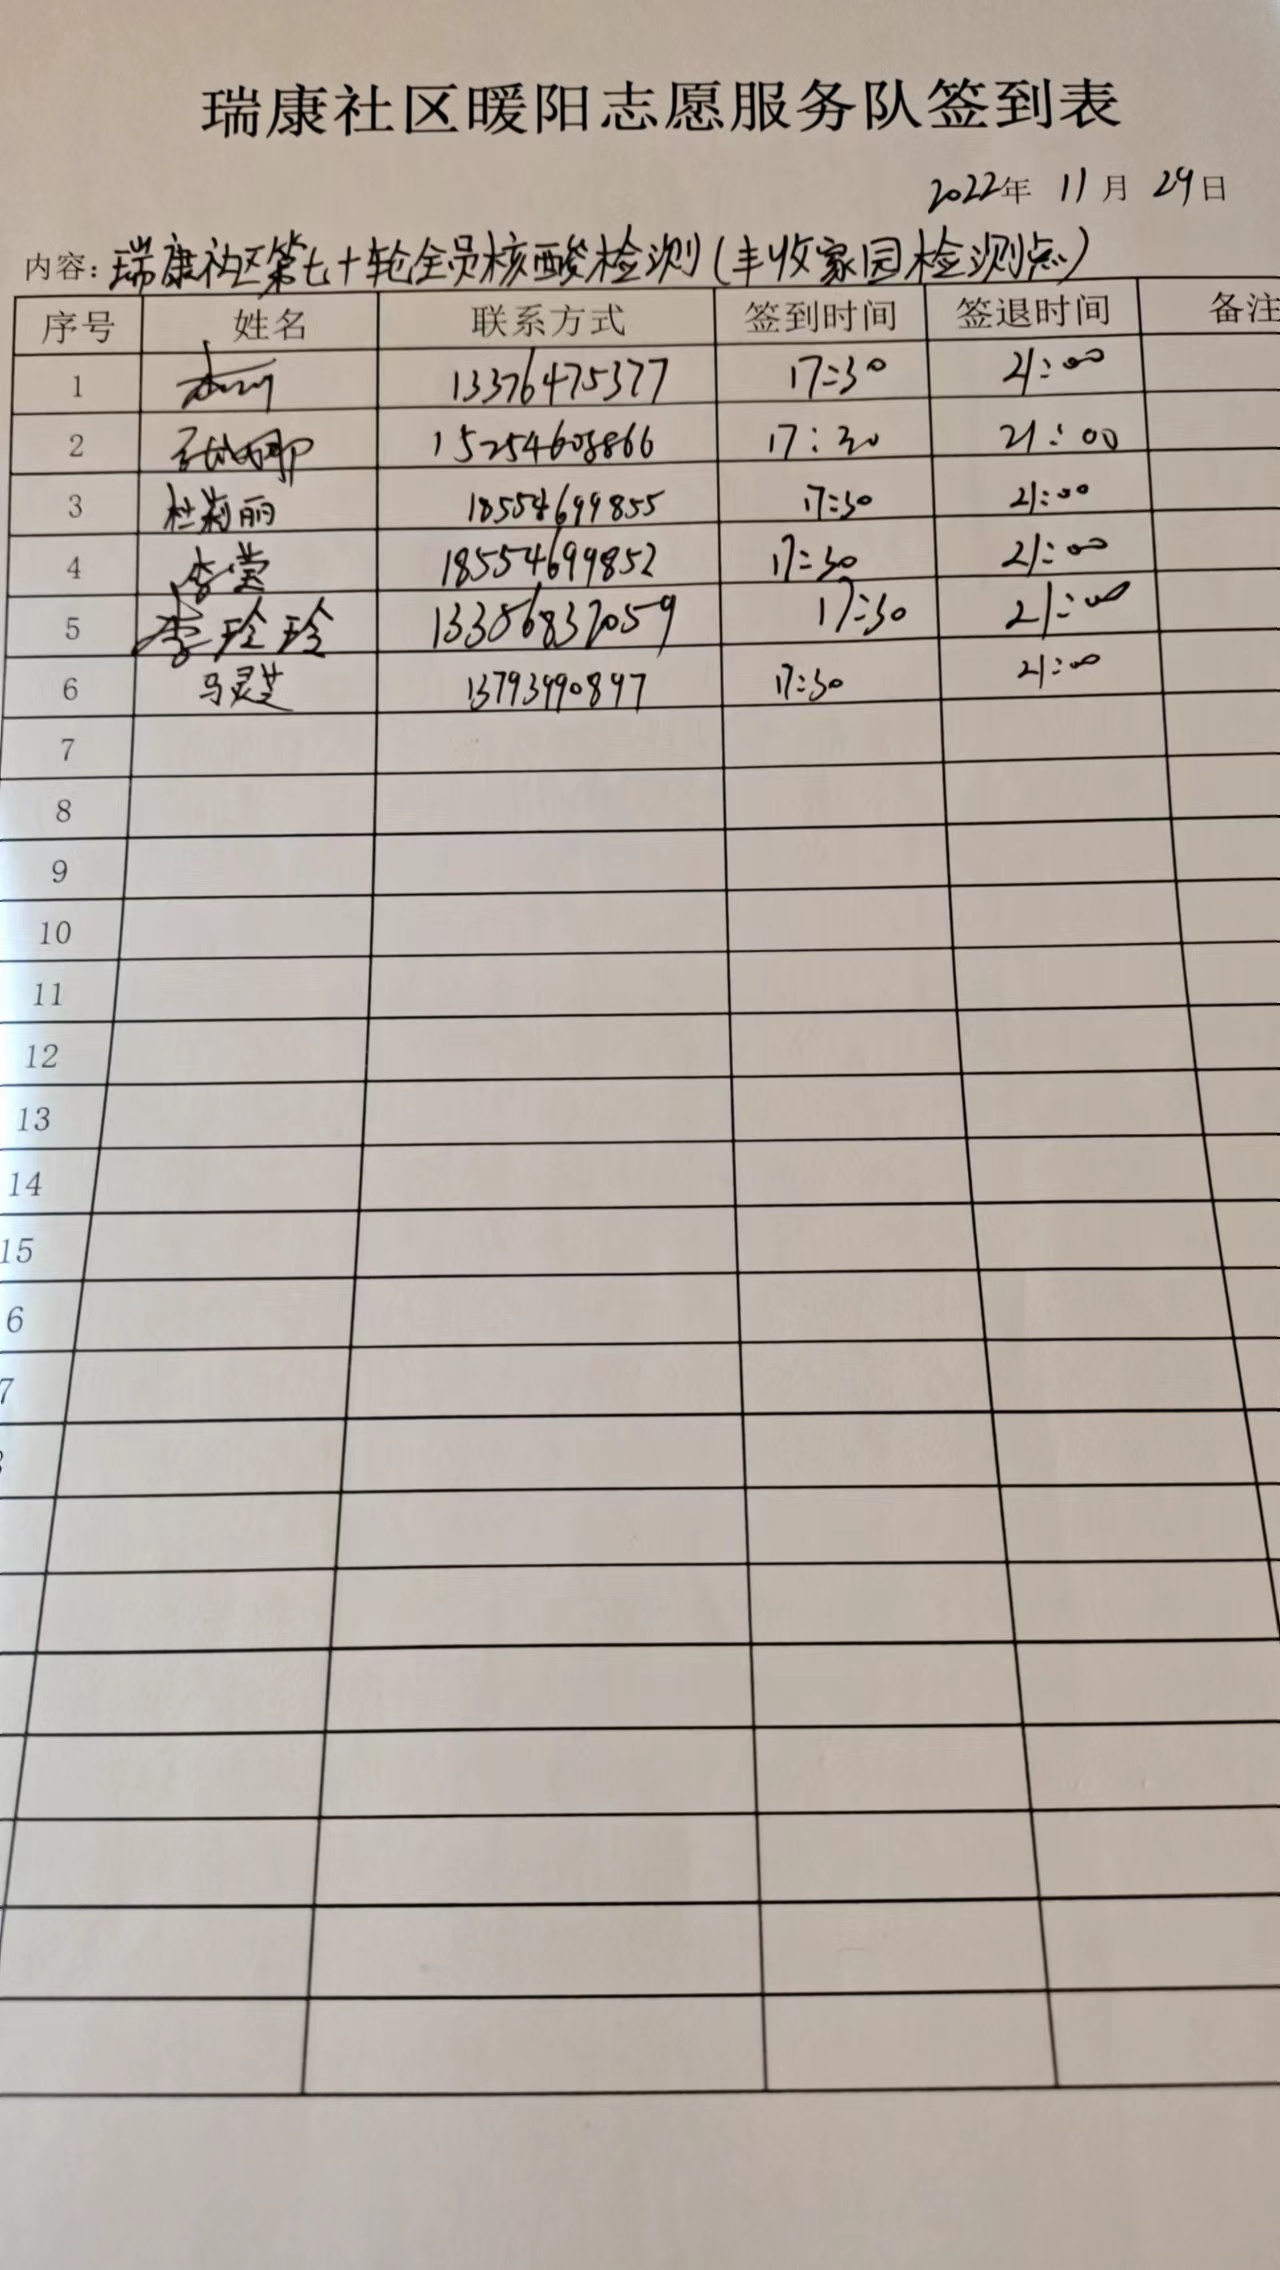 瑞康社区暖阳志愿服务队签到表
2022年 11月 29日
内容：瑞康社区第七十轮全员核酸检测（丰收家园检测点）
序号 姓名 联系方式 签到时间 签退时间 备注
1 13376475377 17:30 21:00
2 15254608866 17:30 21:00
3 杜莉丽 18554699855 17:30 21:00
4 李莹 18554699852 17:30 21:00
5 李玲玲 17:30 21:00
6 马灵芝 13793990897 17:30 21:00
7
8
9
10
11
12
13
14
15
6
7